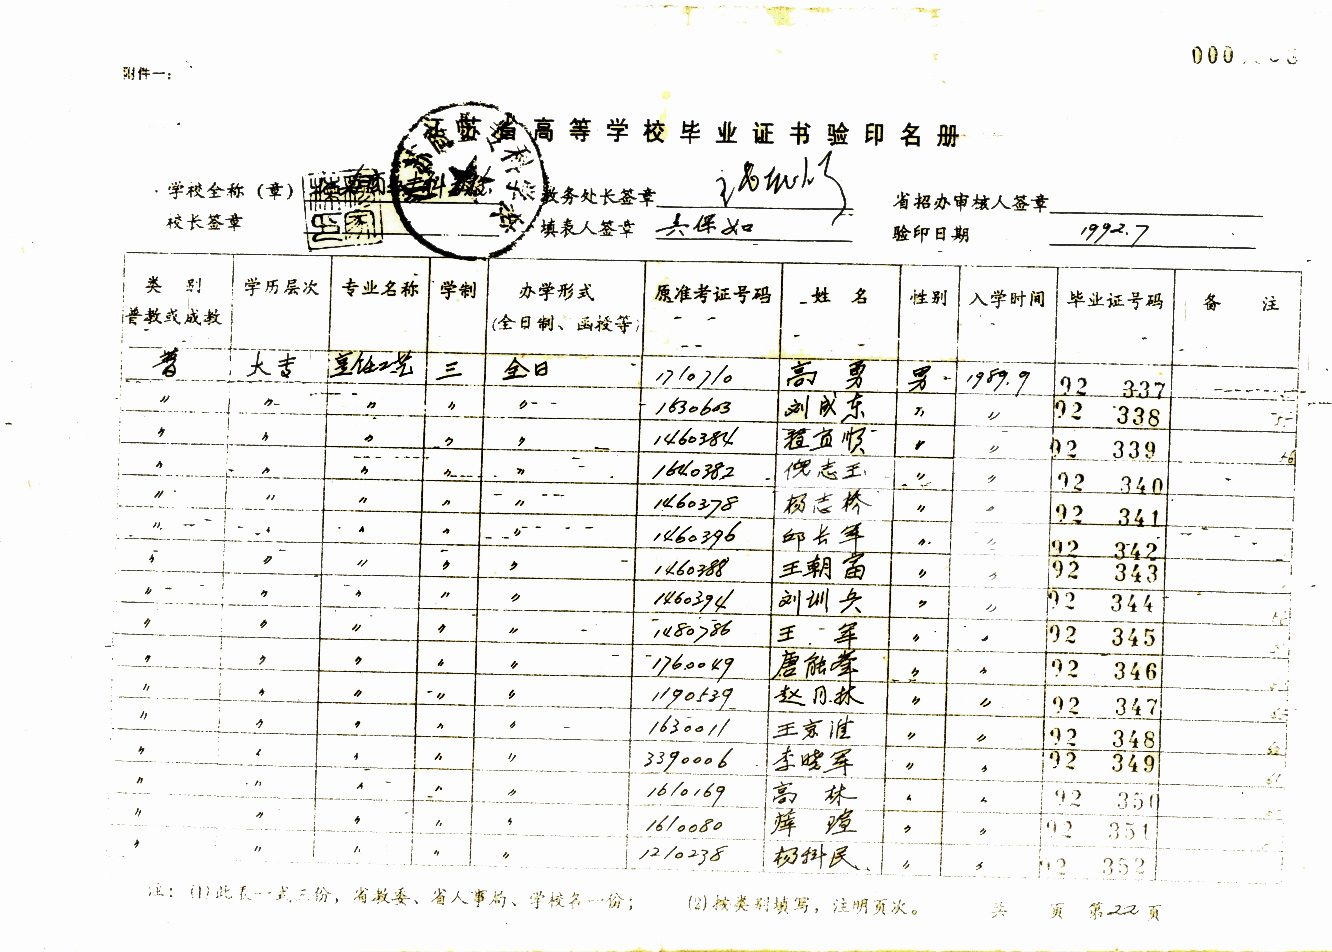 附件一：
江苏省高等学校毕业证书验印名册
学校全称（章） 教务处长签章 省招办审核人签章
校长签章 填表人签章 吴保如 验印日期 1992.7
类别 学历层次 专业名称 学制 办学形式 原准考证号码 姓名 性别 入学时间 毕业证号码 备注
普教或成教 (全日制、函授等)
普 大专 烹饪工艺 三 全日 1710710 高勇 男 1989.9 92 337
〃 〃 〃 〃 〃 1630603 刘成东 〃 〃 92 338
〃 〃 〃 〃 〃 1460384 程益顺 〃 〃 92 339
〃 〃 〃 〃 〃 1640382 倪志玉 〃 〃 92 340
〃 〃 〃 〃 〃 1460378 杨志桥 〃 〃 92 341
〃 〃 〃 〃 〃 1460396 邱长军 〃 〃 92 342
〃 〃 〃 〃 〃 1460388 王朝富 〃 〃 92 343
〃 〃 〃 〃 〃 1460394 刘训兵 〃 〃 92 344
〃 〃 〃 〃 〃 1480786 王军 〃 〃 92 345
〃 〃 〃 〃 〃 1760049 唐能莹 〃 〃 92 346
〃 〃 〃 〃 〃 1190539 赵月林 〃 〃 92 347
〃 〃 〃 〃 〃 1630011 王京淮 〃 〃 92 348
〃 〃 〃 〃 〃 3390006 李晓军 〃 〃 92 349
〃 〃 〃 〃 〃 1610169 高林 〃 〃 92 350
〃 〃 〃 〃 〃 1610080 薛瑄 〃 〃 92 351
〃 〃 〃 〃 〃 1210238 杨科民 〃 〃 92 352
注：(1)此表一式三份，省教委、省人事局、学校各一份； (2)按类别填写，注明页次。 共 页 第22页